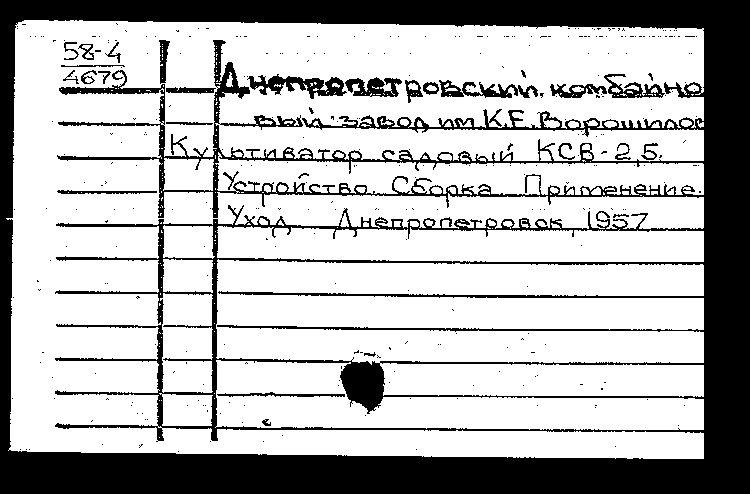 58-4
4679
Днепропетровский комбайно
вый завод им. К.Е. Ворошилов
Культиватор садовый КСВ-2,5.
Устройство. Сборка. Применение.
Уход. Днепропетровск, 1957